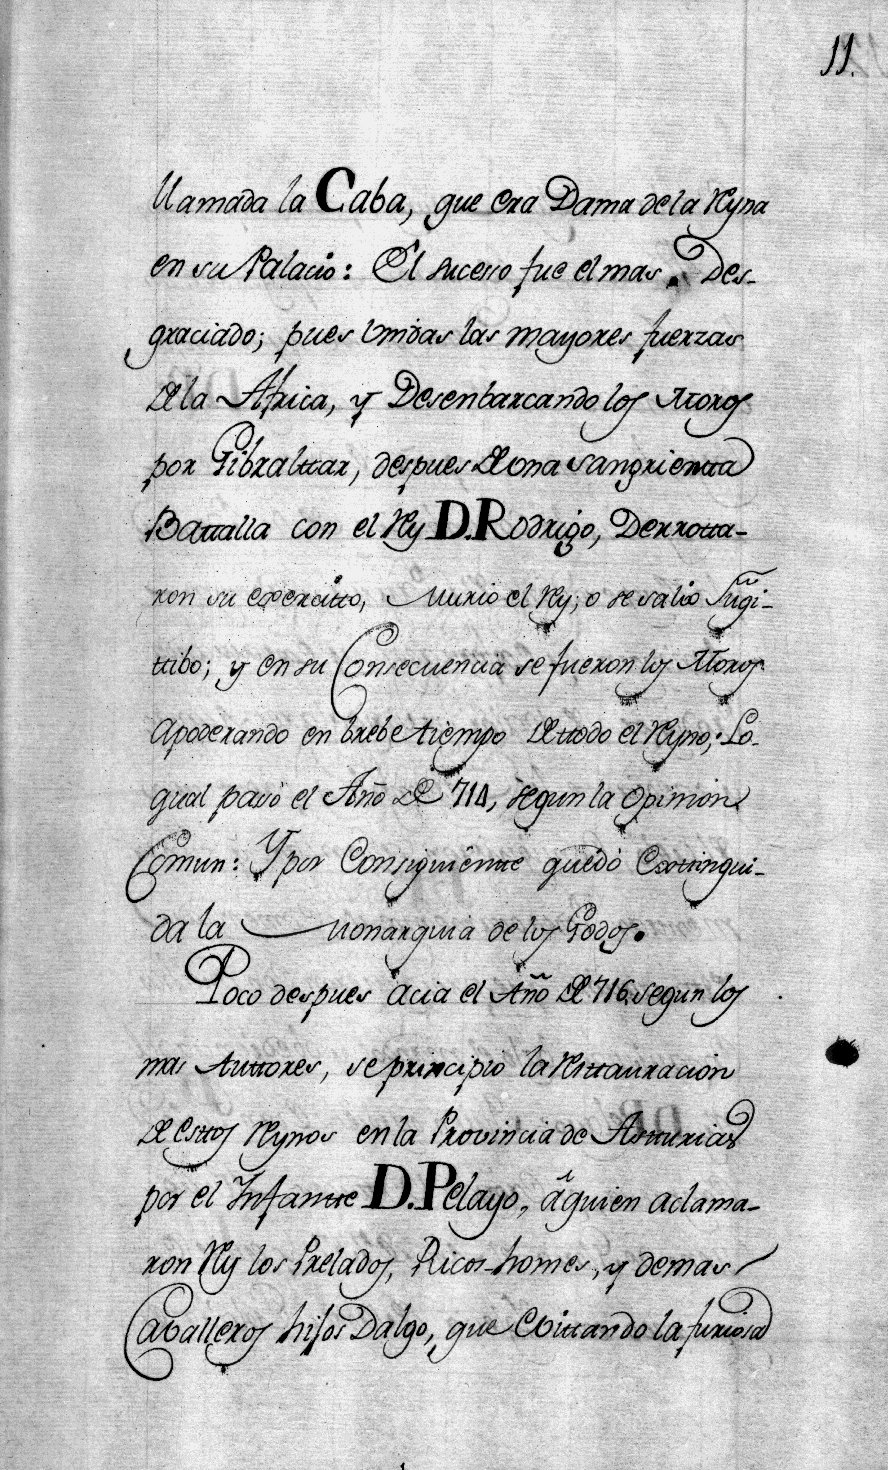 11.
llamada la Caba, que era Dama de la Reyna
en su Palacio: El sucesso fue el mas Des-
graciado; pues Vnidas las mayores fuerzas
de la Africa, y Desenbarcando los Moros
por Gibralttar, despues de vna sangrientta
Battalla con el Rey D. Rodrigo, Derrotta-
ron su exercitto, Murio el Rey, o se salio Fugi-
ttibo; y en su Consecuencia se fueron los Moros
apoderando en brebe tiempo de ttodo el Reyno; Lo
qual pasò el Año de 714, segun la Opinion
Comun: Y por Consiguientte quedò Exttingui-
da la Monarquia de los Godos.
Poco despues acia el Año de 716 segun los
mas Auttores, se principiò la Resttauracion
de Esttos Reynos en la Provincia de Astturias
por el Infantte D. Pelayo, à quien aclama-
ron Rey los Prelados, Ricos-homes, y demas
Cavalleros hijos Dalgo, que Evittando la furiosa